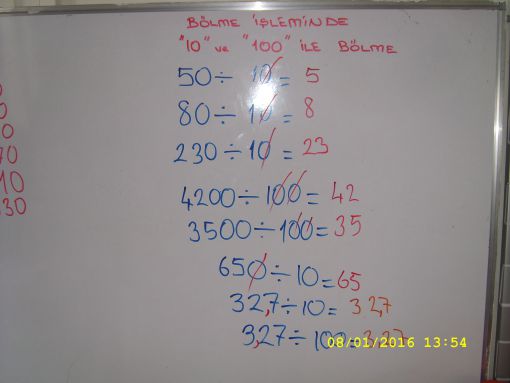 BÖLME İŞLEMİNDE
"10" ve "100" İLE BÖLME
50÷10=5
80÷10=8
230÷10=23
4200÷100=42
3500÷100=35
650÷10=65
32,7÷10=32,7
3,27÷100=3,27
08/01/2016 13:54